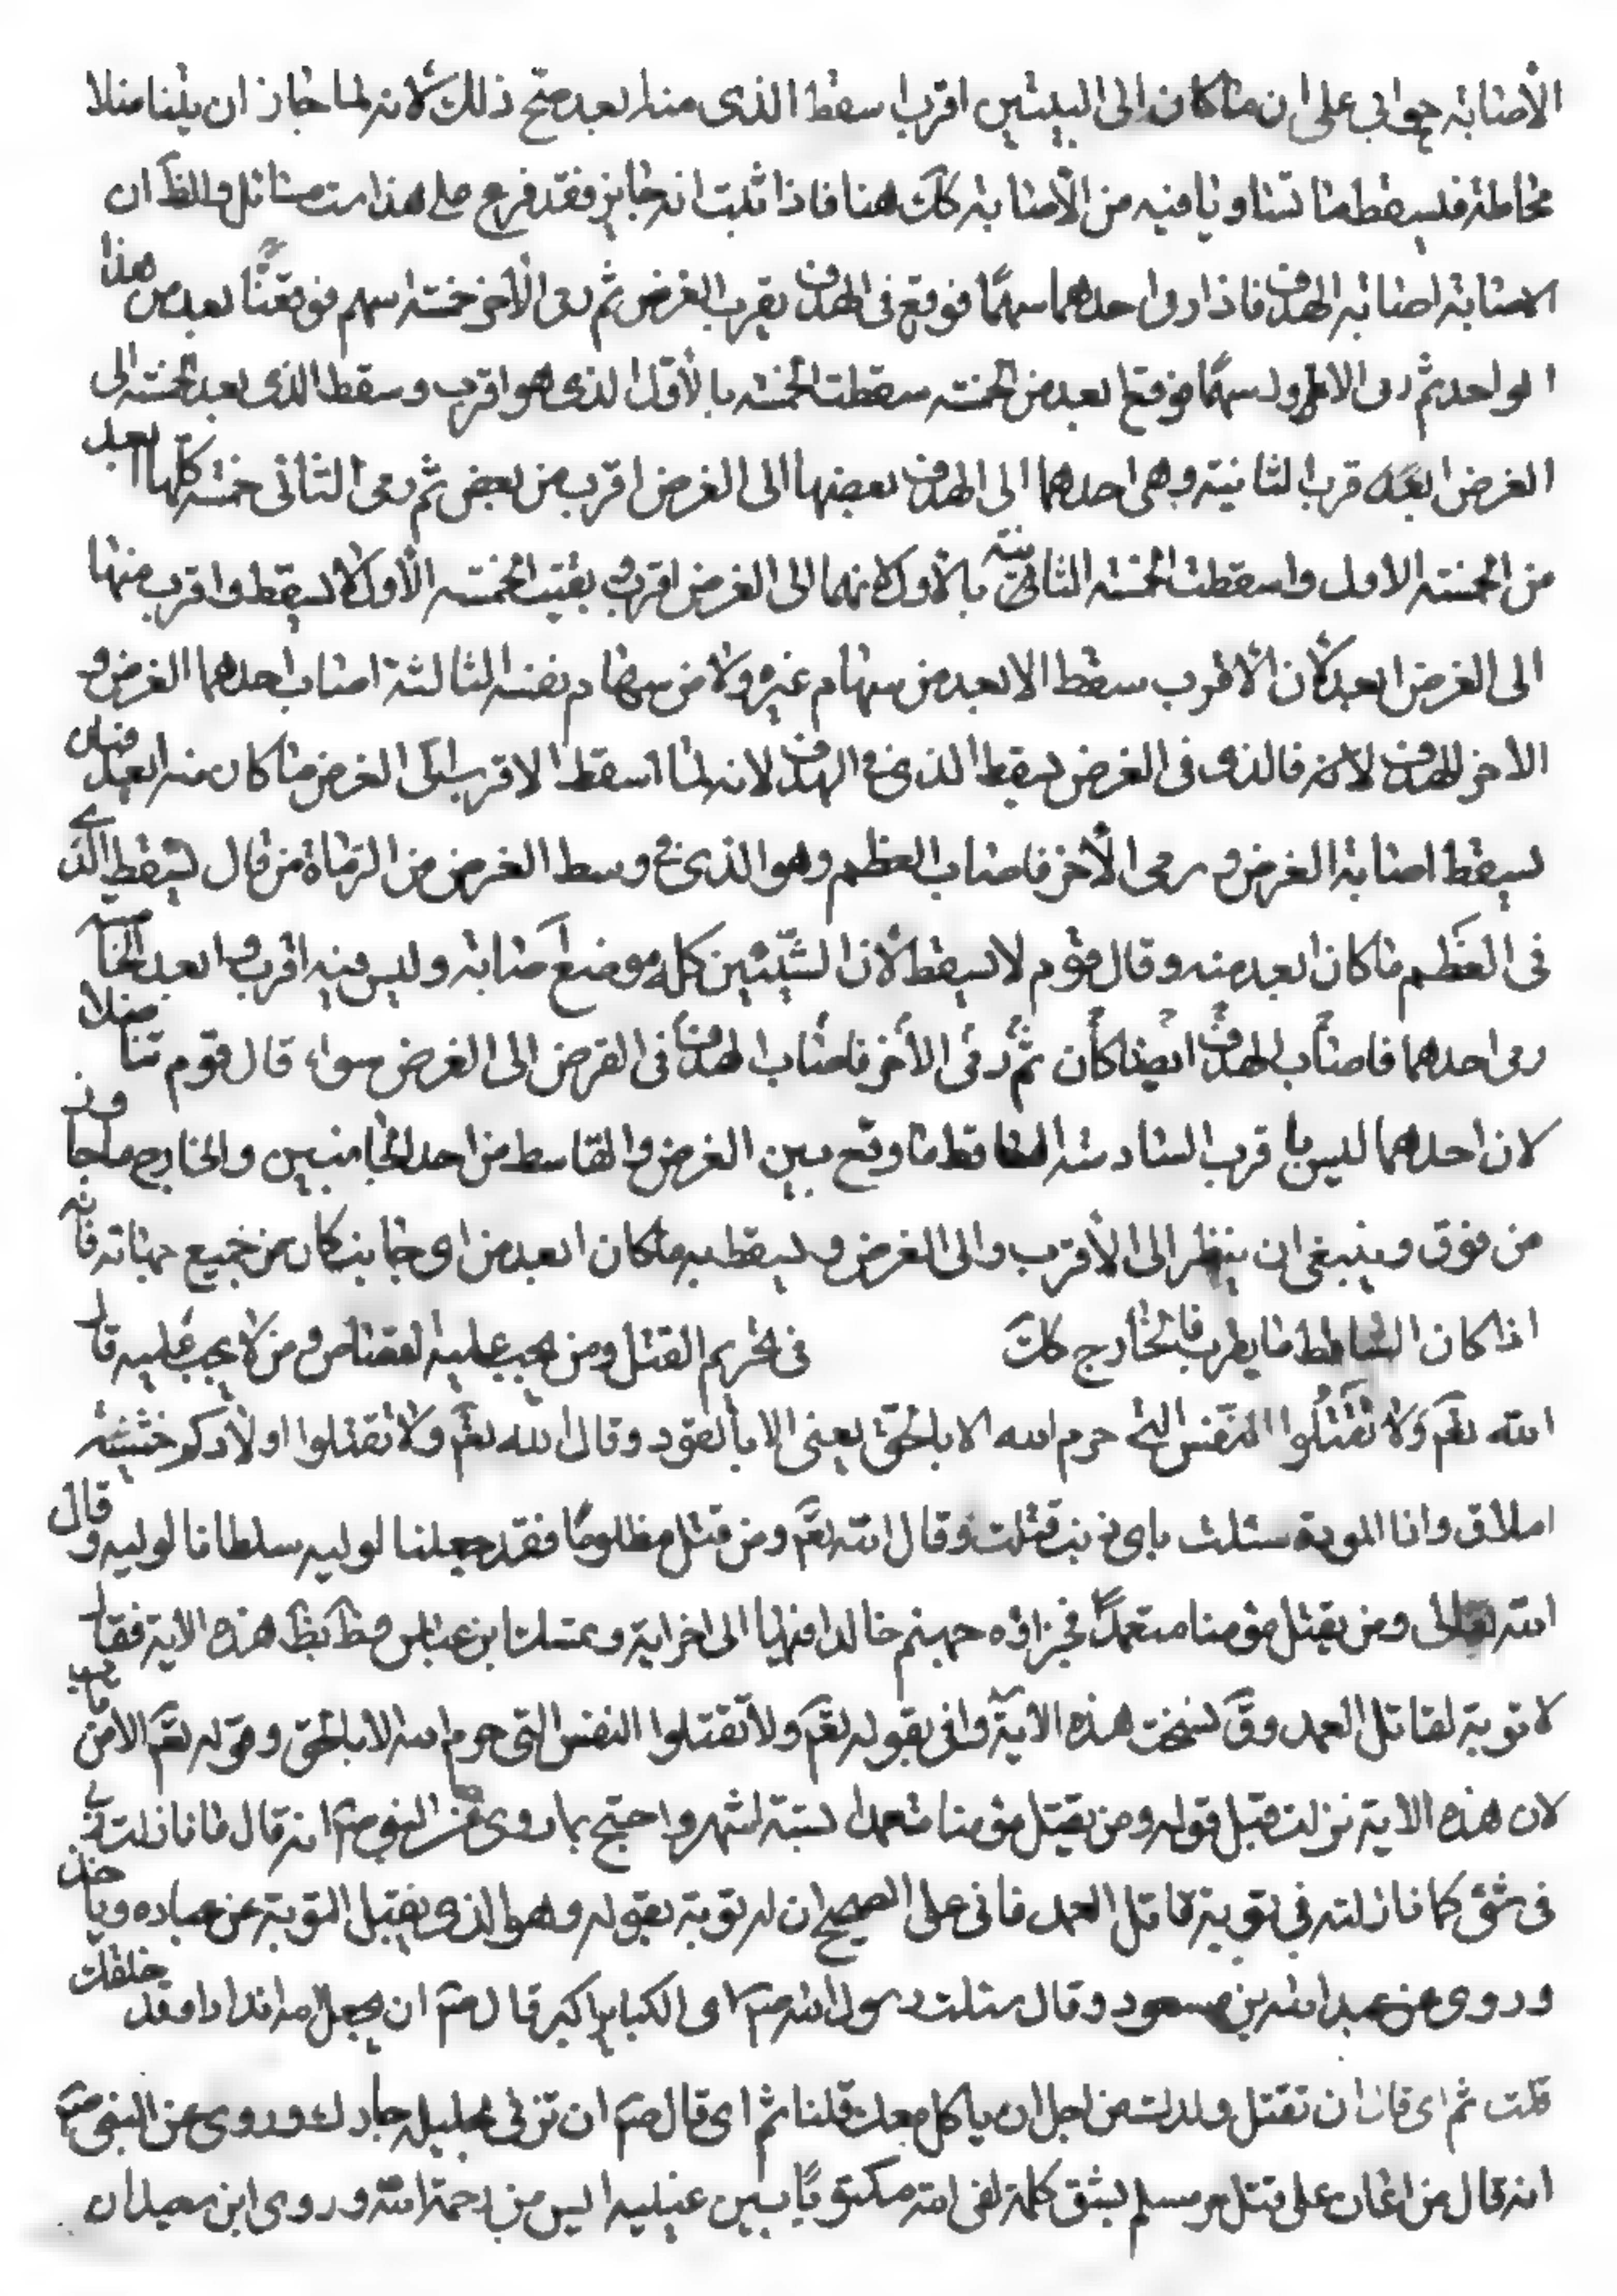 الأصابة حوابى على ان ما كان الى البيتين اقرب اسقط الذى منه ابعد صح ذلك لانه لما جاز ان يلينا مثلا
مخاطة فليسقط ما تساويا فيه من الأصابة كك هنا فاذا ثبت انه جايز فقد فرع على هذا ست مسائل والظ ان
الاصابة اصابة الهدف فاذا رمى احدهما سهمًا فوقع فى الهدف يقرب الغرض ثم رمى الأخر خمسة اسهم فوقعتا ابعد من هذا
الواحد ثم رمى الاول سهمًا فوقع ابعد من الخمسة سقطت الخمسة بالأول الذى هو اقرب وسقط الذى بعد الخمسة الى
الغرض ابعد قرب الثانية وهى احدهما الى الهدف بعضها الى الغرض اقرب من بعض ثم رمى الثانى خمسة كلها ابعد
من الخمسة الاول واسقطت الخمسة الثانية بالأول لانهما الى الغرض اقرب وبقيت الخمسة الأول لا يسقط واقرب منها
الى الغرض ابعد لأن الأقرب سقط الابعد من سهام غيره ولا من سهام نفسه الثالثة اصاب احدهما الغرض و
الاخر الهدف لانه فالذى فى الغرض يسقط الذى فى الهدف لانه لما اسقط الاقرب الى الغرض ما كان منه ابعد فبان
يسقط اصابة الغرض ورمى الأخر فاصاب العظم وهو الذى فى وسط الغرض من الرماة من قال يسقط الذى
فى العظم ما كان ابعد منه وقال قوم لا يسقط لأن الشيئين كله موضع اصابة وليس فيه اقرب وابعد الخامسة
رمى احدهما فاصاب الهدف ايضا كأن ثم رمى الأخر فاصاب الهدف فى القرض الى الغرض سواء قال قوم تنا ضلا
لان احدهما ليس با قرب السادسة الساقط ما وقع بين الغرض والقاسط من احد الجانبين والخارج ما جاوز
من فوق وينبغى ان ينظر الى الأقرب والى الغرض ويسقط به ما كان ابعد من اى جانب كان من جميع جهاته فانه
اذا كان الساقط ما يطرب فالخارج كك فى تحريم القتل ومن يجب عليه القصاص ومن لا يجب عليه قال
الله تعم ولا تقتلوا النفس التى حرم الله الا بالحق يعنى الا بالقود وقال الله تعم ولا تقتلوا اولادكم خشية
املاق وانا الموية سئلت باى ذنب قتلت وقال الله تعم ومن قتل مظلومًا فقد جعلنا لوليه سلطانا لوليه وقال
الله تعالى ومن يقتل مؤمنا متعمدًا فجزاؤه جهنم خالدا فيها الى اخر اية وتمسك ابن عباس هذه الاية فقال
لا توبة لقاتل العمد وق نسخت هذه الاية وانى بقوله تعم ولا تقتلوا النفس التى حرم الله الا بالحق وقوله تعم الا من تاب
لان هذه الاية نزلت قبل قوله ومن يقتل مؤمنا متعمدا لستة اشهر واحتج بما روى عن النبى صم انه قال ما نازلت ربى
فى شئ كما نازلته فى توبة قاتل العمد فانى على الصحيح ان له توبة بقوله وهو الذى يقبل التوبة عن عباده وياخذ
وروى عن عبد الله بن مسعود وقال سئلت رسول الله صم اى الكباير اكبر قال صم ان يجعل لله اندادا وقد خلقك
قلت ثم اى قال ان تقتل ولدك من اجل ان ياكل معك قلنا ثم اى قال صم ان تزنى بحليلة جارك وروى عن النبى صم
انه قال من اعان على قتل مر مسلم بشق كلمة لقى الله مكتوبًا بين عينيه ايس من رحمة الله وروى ابن ان